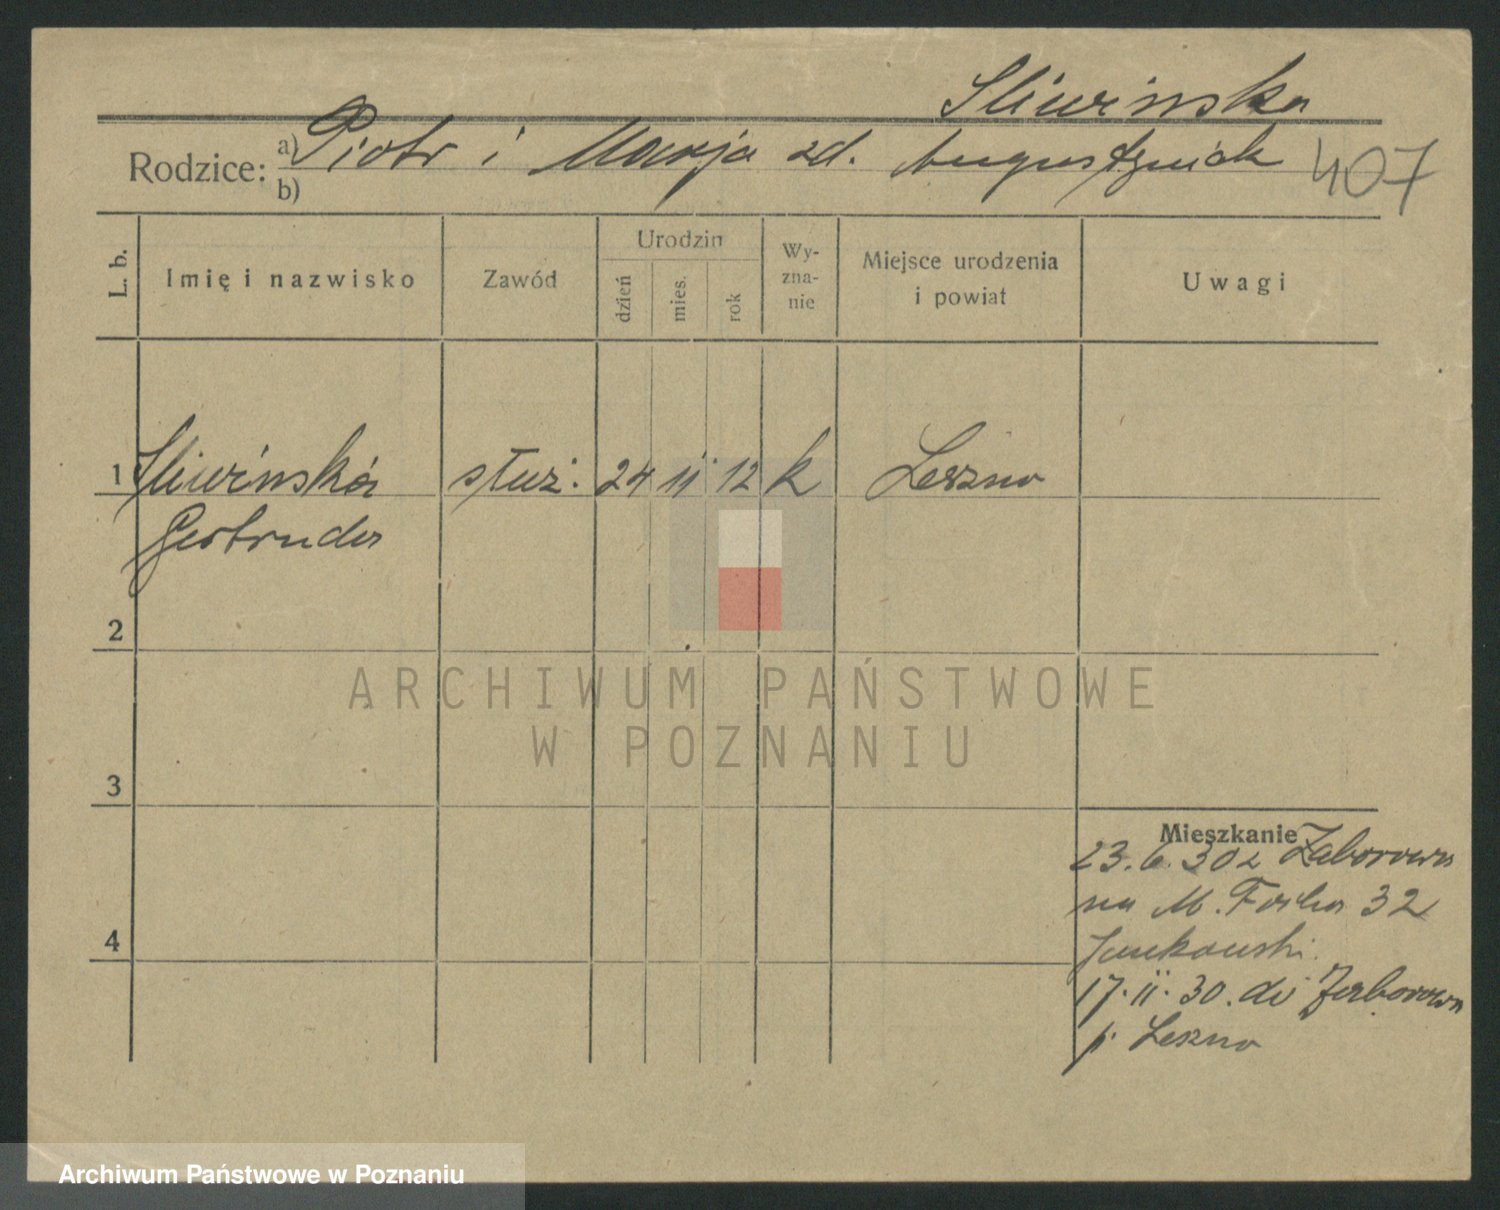 Sliwinska
Rodzice: a) Piotr i Marja zd. Augustyniak 407
b)
L. b. Imię i nazwisko Zawód Urodzin dzień mies. rok Wy-zna-nie Miejsce urodzenia i powiat Uwagi
1 Sliwinska służ. 24 11 12 k Leszno
Gertruda
2
3
4
Mieszkanie
23.6.30 z Zaborowa
na M. 32
Jankowski.
17.11.30. do Zaborowa
p. Leszno
ARCHIWUM PAŃSTWOWE
W POZNANIU
Archiwum Państwowe w Poznaniu